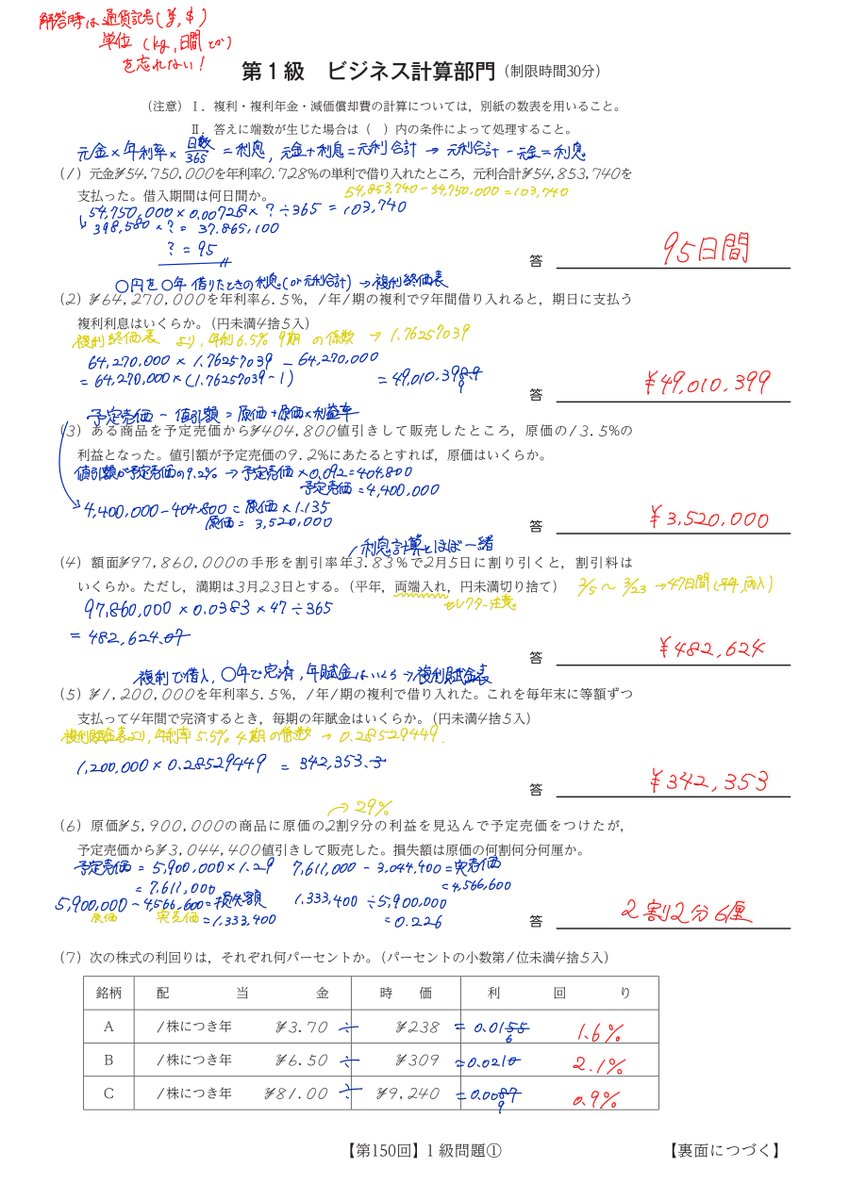 解答時は通貨記号(¥,$)
単位(kg,日間とか)
を忘れない!
第1級 ビジネス計算部門(制限時間30分)
(注意) Ⅰ. 複利・複利年金・減価償却費の計算については,別紙の数表を用いること。
Ⅱ. 答えに端数が生じた場合は( )内の条件によって処理すること。
元金×年利率×日数/365=利息, 元金+利息=元利合計→元利合計-元金=利息
(1) 元金¥54,750,000を年利率0.728%の単利で借り入れたところ,元利合計¥54,853,740を
支払った。借入期間は何日間か。 54,853,740-54,750,000=103,740
54,750,000×0.00728×?÷365=103,740
398,580×?=37,865,100
?=95
答 95日間
○円を○年借りたときの利息(or元利合計)→複利終価表
(2) ¥64,270,000を年利率6.5%,1年1期の複利で9年間借り入れると,期日に支払う
複利利息はいくらか。(円未満4捨5入)
複利終価表より,年利6.5% 9期の係数→1.76257039
64,270,000×1.76257039-64,270,000
=64,270,000×(1.76257039-1) =49,010,398.9
9
答 ¥49,010,399
予定売価-値引額=原価+原価×利益率
(3) ある商品を予定売価から¥404,800値引きして販売したところ,原価の13.5%の
利益となった。値引額が予定売価の9.2%にあたるとすれば,原価はいくらか。
値引額が予定売価の9.2%→予定売価×0.092=404,800
予定売価=4,400,000
4,400,000-404,800=原価×1.135
原価=3,520,000
答 ¥3,520,000
利息計算とほぼ一緒
(4) 額面¥97,860,000の手形を割引率年3.83%で2月5日に割り引くと,割引料は
いくらか。ただし,満期は3月23日とする。(平年,両端入れ,円未満切り捨て) 2/5~3/23→47日間(平年,両入)
セレクター注意。
97,860,000×0.0383×47÷365
=482,624.07
答 ¥482,624
複利で借入,○年で完済,年賦金はいくら→複利賦金表
(5) ¥1,200,000を年利率5.5%,1年1期の複利で借り入れた。これを毎年末に等額ずつ
支払って4年間で完済するとき,毎期の年賦金はいくらか。(円未満4捨5入)
複利賦金表より,年利率5.5% 4期の係数→0.28529449.
1,200,000×0.28529449 =342,353.3
答 ¥342,353
→29%
(6) 原価¥5,900,000の商品に原価の2割9分の利益を見込んで予定売価をつけたが,
予定売価から¥3,044,400値引きして販売した。損失額は原価の何割何分何厘か。
予定売価=5,900,000×1.29 7,611,000-3,044,400=実売価
=7,611,000 =4,566,600
5,900,000-4,566,600=損失額 1,333,400÷5,900,000
原価 実売価 =1,333,400 =0.226
答 2割2分6厘
(7) 次の株式の利回りは,それぞれ何パーセントか。(パーセントの小数第1位未満4捨5入)
銘柄 配当金 時価 利回り
A 1株につき年 ¥3.70 ÷ ¥238 =0.0155 1.6%
6
B 1株につき年 ¥6.50 ÷ ¥309 =0.0210 2.1%
C 1株につき年 ¥81.00 ÷ ¥9,240 =0.0087 0.9%
9
【第150回】1級問題① 【裏面につづく】